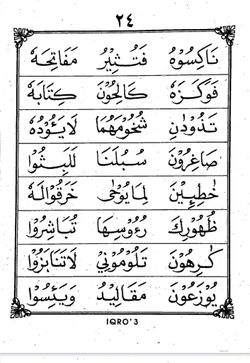 ٢٤
نَاكِسُوْهُ فَتُثِيْرُ مَفَاتِحَهُ
فَوَكَزَهُ كَالِحُوْنَ كِتَابَهُ
تَذُوْدٰنِ شُحُوْمَهُمَا لَايَؤُدُهُ
صَاغِرُوْنَ سُبُلَنَا لَلَبِثُوْا
خٰطِئِيْنَ لِمَا يُوْحٰى خَرَقُوْالَهُ
ظُهُوْرِكَ رُءُوْسِهَا تُبَاشِرُوْا
كَارِهُوْنَ تَلُوْمُوْنِيْ لَاتَنَابَزُوْا
يُوْزَعُوْنَ مَقَالِيْدُ وَيَئِسُوْا
IQRO'3